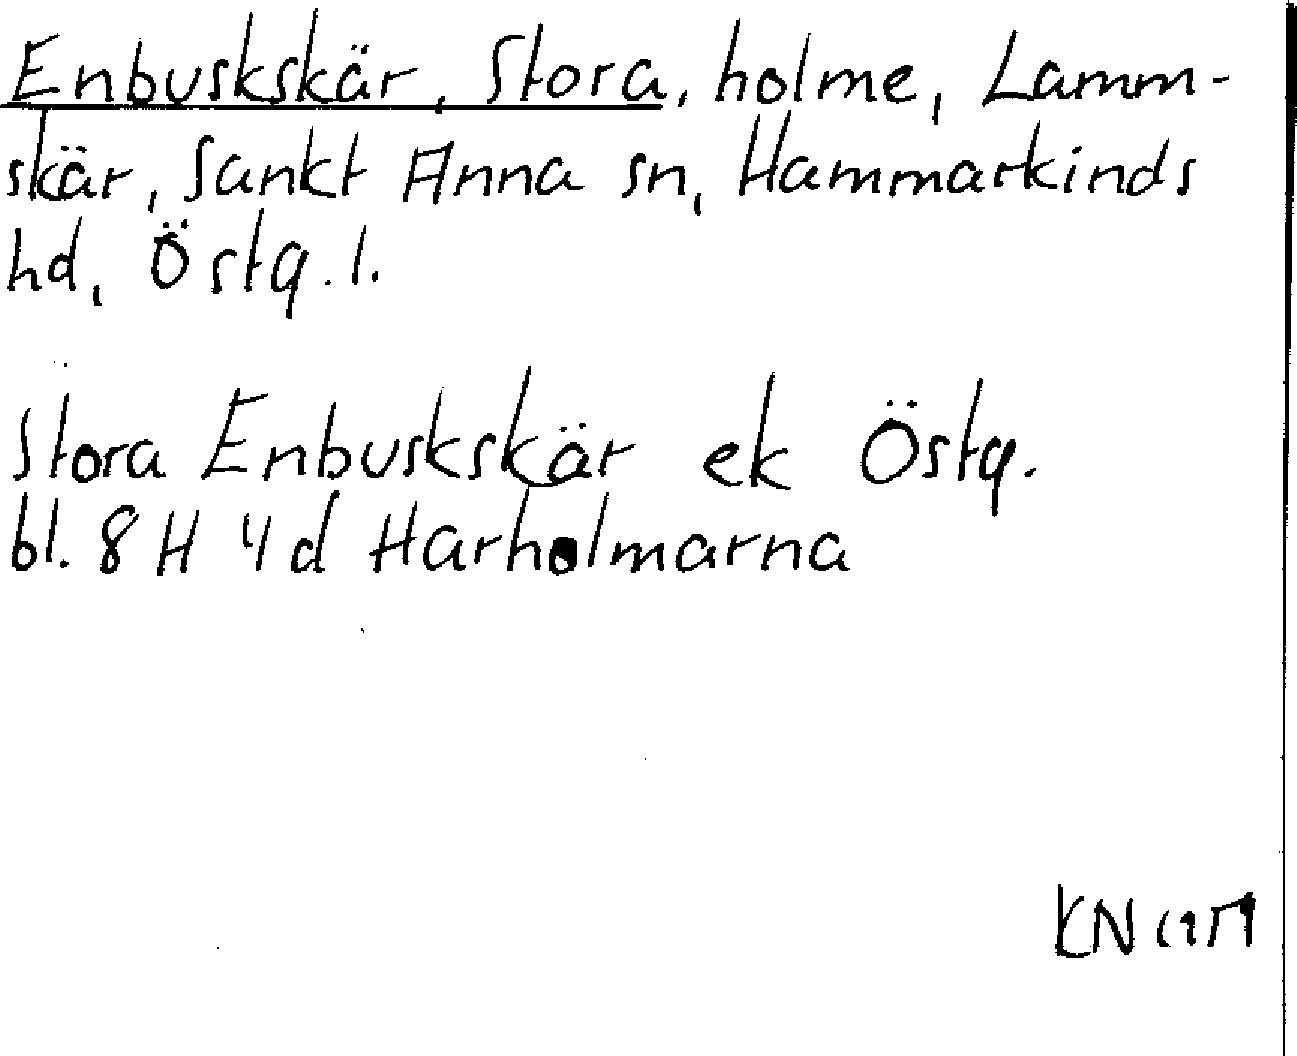 Enbuskskär, Stora, holme, Lamm-
skär, Sankt Anna sn, Hammarkinds
hd, Östg. l.
Stora Enbuskskär ek Östg.
bl. 8 H 4 d Harholmarna
KN